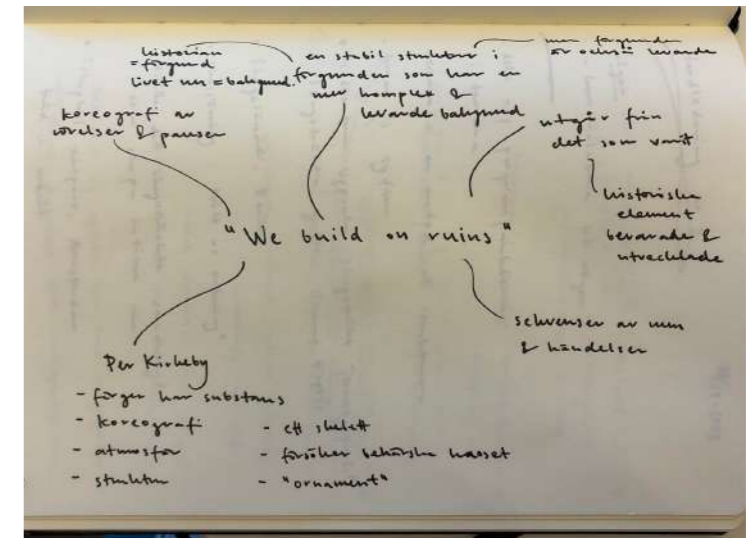 historian
= förgrund
livet nu = bakgrund.
en stabil struktur i
förgrunden som har en
mer komplex &
levande bakgrund
men förgrunden
är också levande
koreografi av
rörelser & pauser
utgår från
det som varit
historiska
element
bevarade &
utvecklade
"We build on ruins"
sekvenser av rum
& händelser
Per Kirkeby
- färger har substans
- koreografi
- atmosfär
- struktur
- ett skelett
- försöker behärska kaoset
- "ornament"